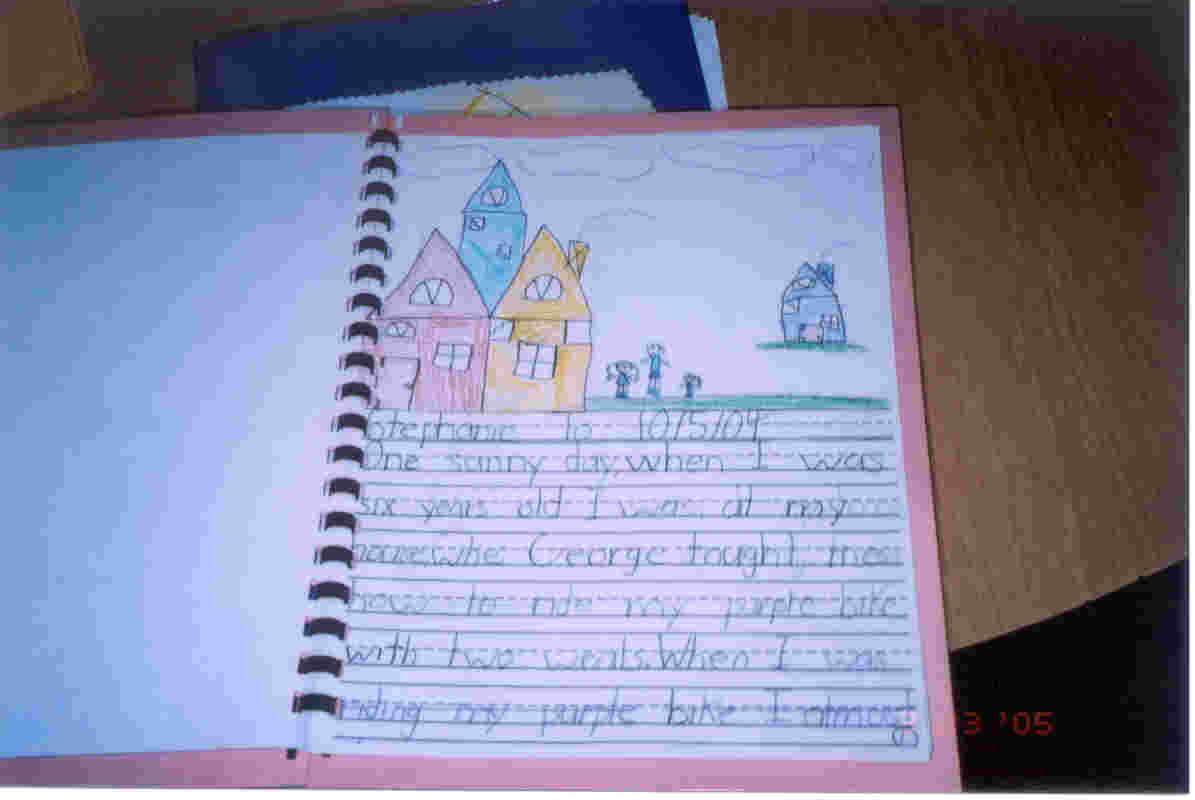 Stephanie To 10/5/04
One sunny day, when I was
six years old I was at my
house whe George tought me
how to ride my purple bike
with two weals. When I was
riding my purple bike I almost
3 '05